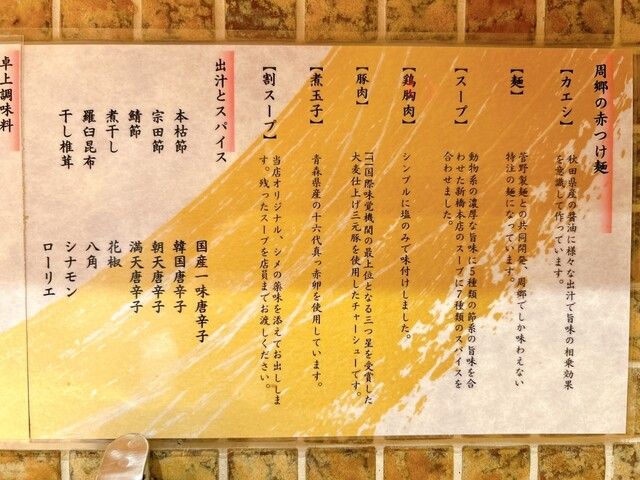 周郷の赤つけ麺
【カエシ】
秋田県産の醤油に様々な出汁で旨味の相乗効果
を意識して作っています。
【麺】
菅野製麺との共同開発、周郷でしか味わえない
特注の麺になっています。
【スープ】
動物系の濃厚な旨味に5種類の節系の旨味を合
わせた新橋本店のスープに7種類のスパイスを
合わせました。
【鶏胸肉】
シンプルに塩のみで味付けしました。
【豚肉】
国際味覚機関の最上位となる三つ星を受賞した
大麦仕上げ三元豚を使用したチャーシューです。
【煮玉子】
青森県産の十六代真っ赤卵を使用しています。
【割スープ】
当店オリジナル、シメの薬味を添えてお出ししま
す。残ったスープを店員までお渡しください。
出汁とスパイス
本枯節
宗田節
鯖節
煮干し
羅臼昆布
干し椎茸
国産一味唐辛子
韓国唐辛子
朝天唐辛子
満天唐辛子
花椒
八角
シナモン
ローリエ
卓上調味料